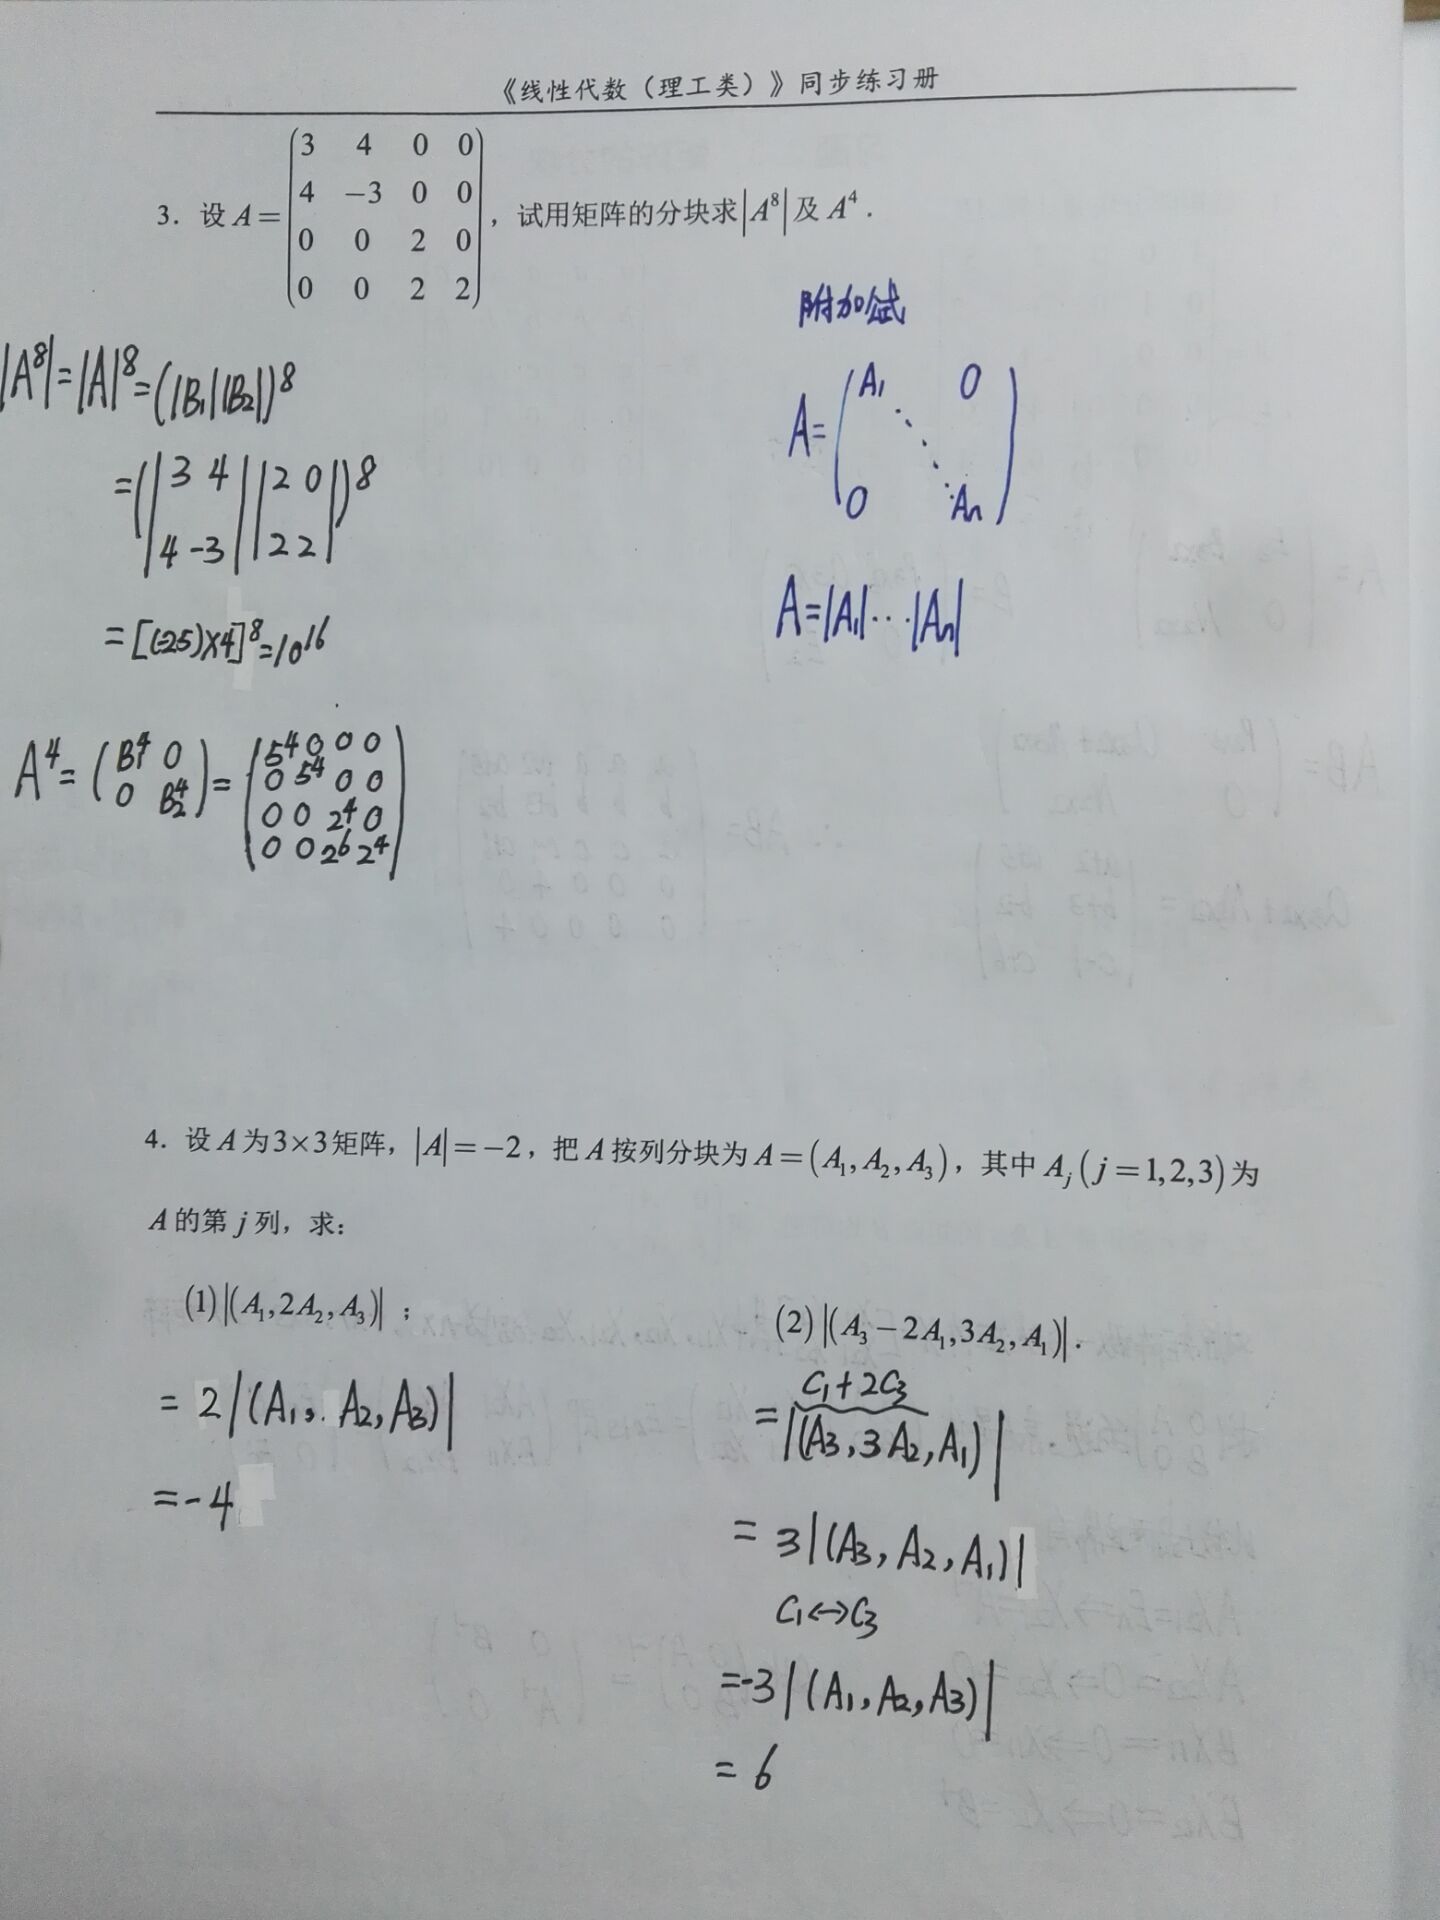 《线性代数（理工类）》同步练习册
3. 设 A = (3 4 0 0; 4 −3 0 0; 0 0 2 0; 0 0 2 2)，试用矩阵的分块求|A⁸|及 A⁴.
|A⁸|=|A|⁸=(|B₁||B₂|)⁸
=(|3 4; 4 -3||2 0; 2 2|)⁸
=[(-25)×4]⁸=10¹⁶
A⁴=(B₁⁴ 0; 0 B₂⁴)=(5⁴ 0 0 0; 0 5⁴ 0 0; 0 0 2⁴ 0; 0 0 2⁶ 2⁴)
附加公式
A=(A₁ 0; ⋱; 0 An)
A=|A₁|···|An|
4. 设 A 为 3×3 矩阵，|A|=−2，把 A 按列分块为 A=(A₁,A₂,A₃)，其中 Aⱼ(j=1,2,3)为
A 的第 j 列，求：
(1)|(A₁,2A₂,A₃)|；
= 2|(A₁, A₂,A₃)|
=-4
(2)|(A₃−2A₁,3A₂,A₁)|.
C₁+2C₃
=|(A₃,3A₂,A₁)|
= 3|(A₃,A₂,A₁)|
C₁↔C₃
=-3|(A₁,A₂,A₃)|
= 6